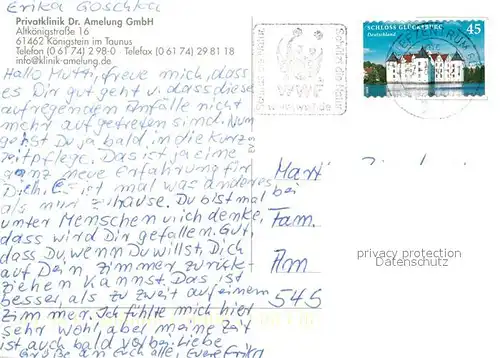 Erika Goschka
Privatklinik Dr. Amelung GmbH
Altkönigstraße 16
61462 Königstein im Taunus
Telefon (0 61 74) 2 98-0 Telefax (0 61 74) 29 81 18
info@klinik-amelung.de
Hallo Mutti, freue mich, dass
es Dir gut geht u. dass diese
aufregenden Anfälle nicht
mehr aufgetreten sind. Nun
gehst Du ja bald in die Kurz-
zeitpflege. Das ist ja eine
ganz neue Erfahrung für
Dich. Es ist mal was anderes
als nur zuhause. Du bist mal
unter Menschen u. ich denke,
dass wird Dir gefallen. Gut,
dass Du, wenn Du willst, Dich
auf Dein Zimmer zurück-
ziehen kannst. Das ist
besser, als zu zweit auf einem
Zimmer. Ich fühlte mich hier
sehr wohl, aber meine Zeit
ist auch bald vorbei. Liebe
Grüße an Euch alle, Eure Erika
WWF
www.wwf.de
SCHLOSS GLÜCKSBURG
Deutschland
45
bei
Fam.
Am
545
privacy protection
Datenschutz